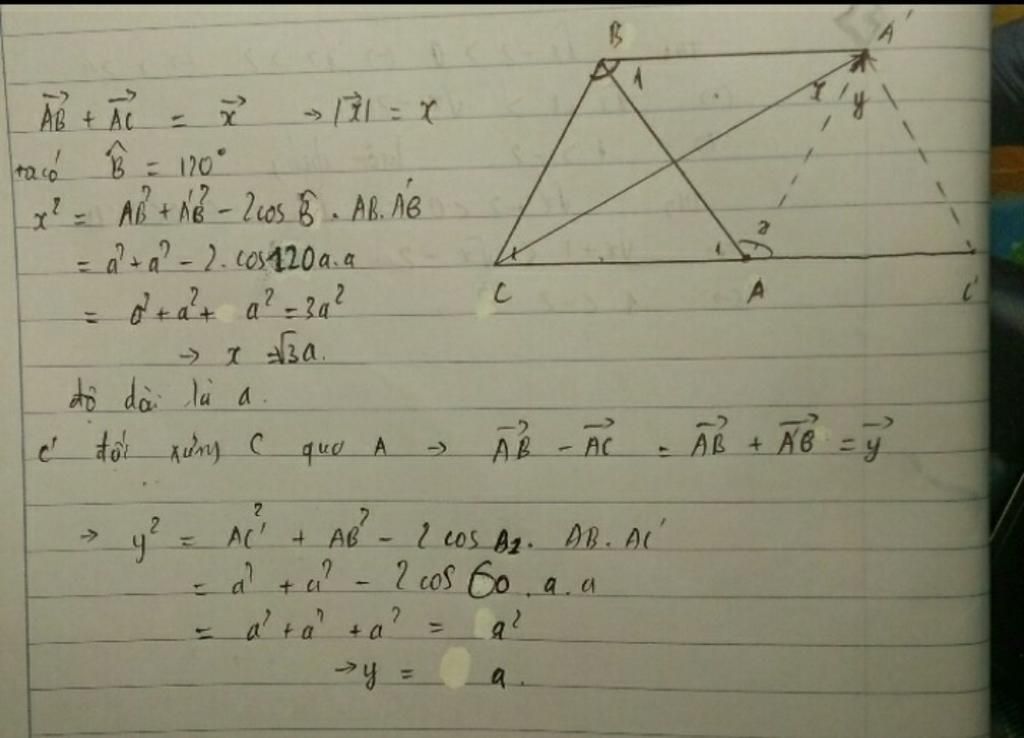 B A'
1 x y
1 2
C A C'
AB→ + AC→ = x→ → |x→| = x
ta có B̂ = 120°
x² = AB² + A'B² - 2cos B̂ . AB. A'B
= a² + a² - 2. cos120 a.a
= a² + a² + a² = 3a²
→ x = √3a.
độ dài là a.
C' đối xứng C qua A → AB→ - AC→ = AB→ + A'B→ = y→
→ y² = AC'² + AB² - 2 cos A2. AB. AC'
= a² + a² - 2 cos 60 . a. a
= a² + a² + a² = a²
→ y = a.